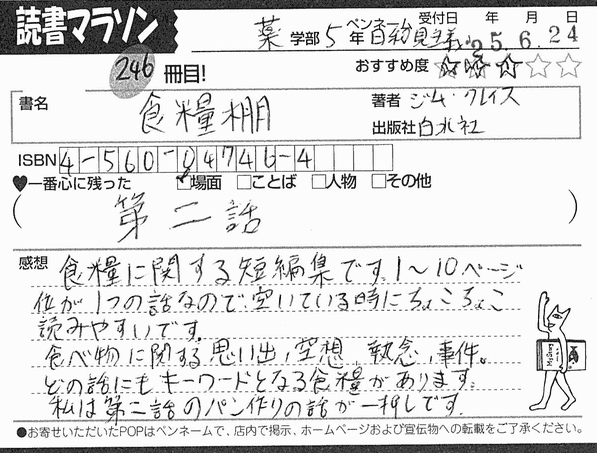 読書マラソン
薬 学部 5 年 ペンネーム 白衣見
受付日 年 月 日
25.6.24
246 冊目!
おすすめ度 ☆☆☆☆☆
書名 食糧棚
著者 ジム・クレイス
出版社 白水社
ISBN 4-560-04746-4
♥一番心に残った ☑場面 □ことば □人物 □その他
( 第二話 )
感想 食糧に関する短編集です。1〜10ページ
位が1つの話なので、空いている時にちょこちょこ
読みやすいです。
食べ物に関する思い出,空想,執念,事件。
どの話にもキーワードとなる食糧があります。
私は第二話のパン作りの話が一押しです。
●お寄せいただいたPOPはペンネームで、店内で掲示、ホームページおよび宣伝物への転載をご了承ください。